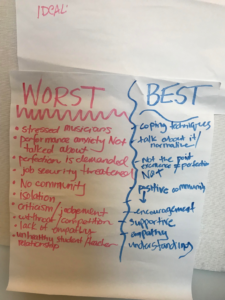 IDEAL:
WORST
• stressed musicians
• performance anxiety NOT
talked about
• perfection is demanded
• job security threatened
• No community
• isolation
• criticism / judgement
• cutthroat / competition
• lack of empathy
• unhealthy student/teacher
relationship
BEST
coping techniques
talk about it /
normative
Not the
excellence perfection
NOT
positive community
encouragement
supportive
empathy
understanding